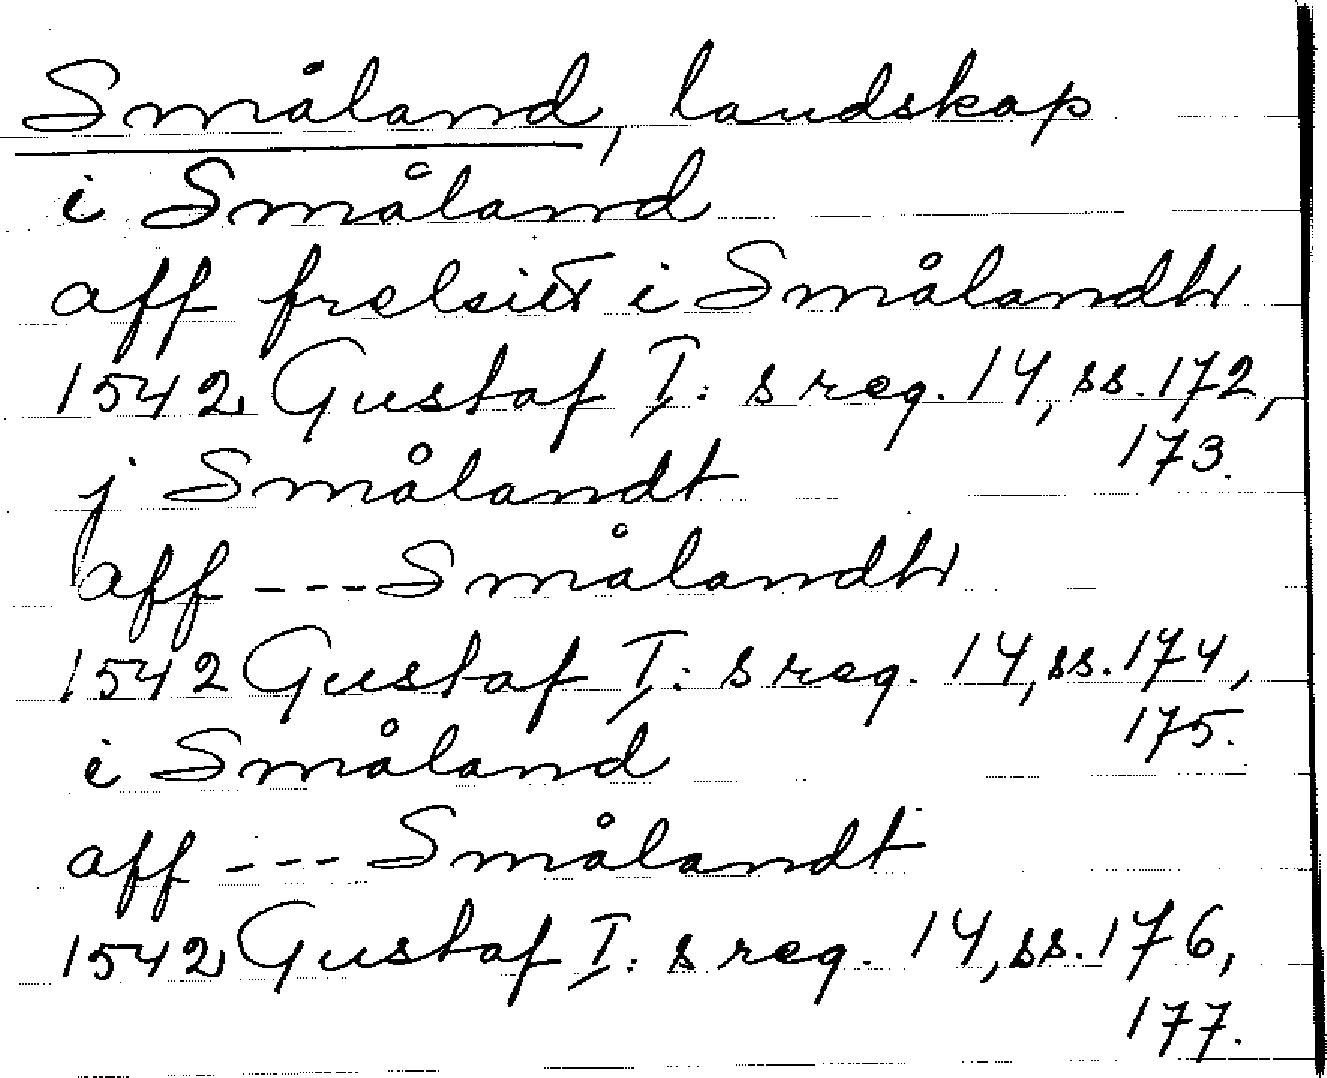 Småland, landskap
i Småland
aff frelsit i Smålandh
1542 Gustaf I:s reg. 14, ss. 172,
173.
j Smålandt
aff --- Smålandh
1542 Gustaf I:s reg. 14, ss. 174,
175.
i Småland
aff --- Smålandt
1542 Gustaf I:s reg. 14, ss. 176,
177.